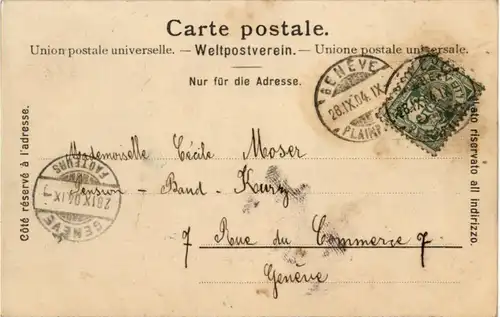 Carte postale.
Union postale universelle. — Weltpostverein. — Unione postale universale.
Nur für die Adresse.
Côté réservé à l'adresse.
lato riservato all indirizzo.
GENÈVE
28.IX.04. IX
PLAINP
Mademoiselle Cécile Moser
Pension - Band - Kurz
7 Rue du Commerce 7
Genève
GENÈVE
28.IX.04.IX
FACTEURS
HELVETIA